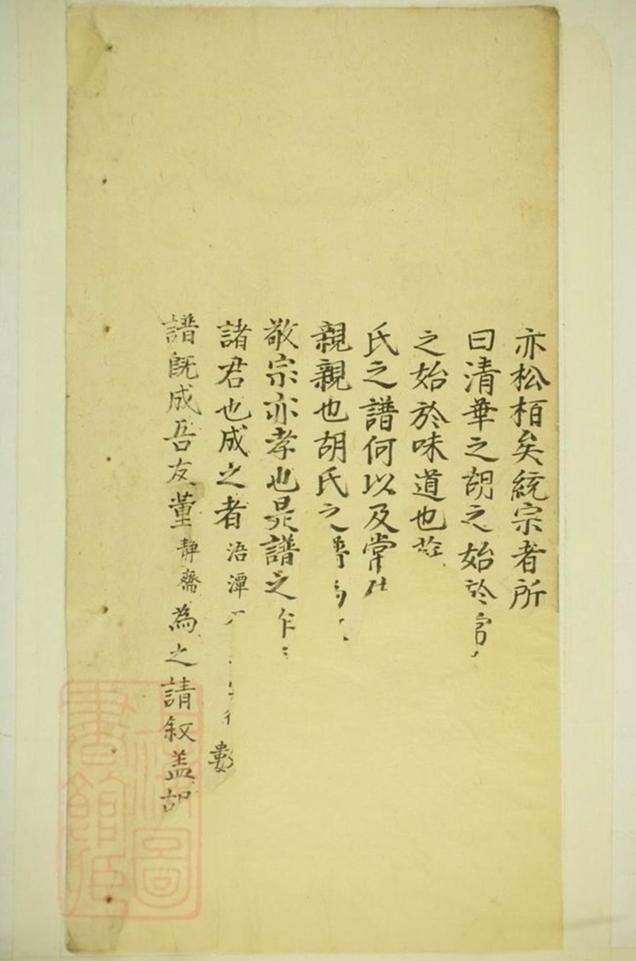 亦松栢矣統宗者所
曰清華之胡之始於官
之始於味道也
氏之譜何以及常
親親也胡氏之
敬宗亦孝也是譜之作
諸君也成之者浯潭
數
譜旣成吾友董靜齋為之請叙盖胡